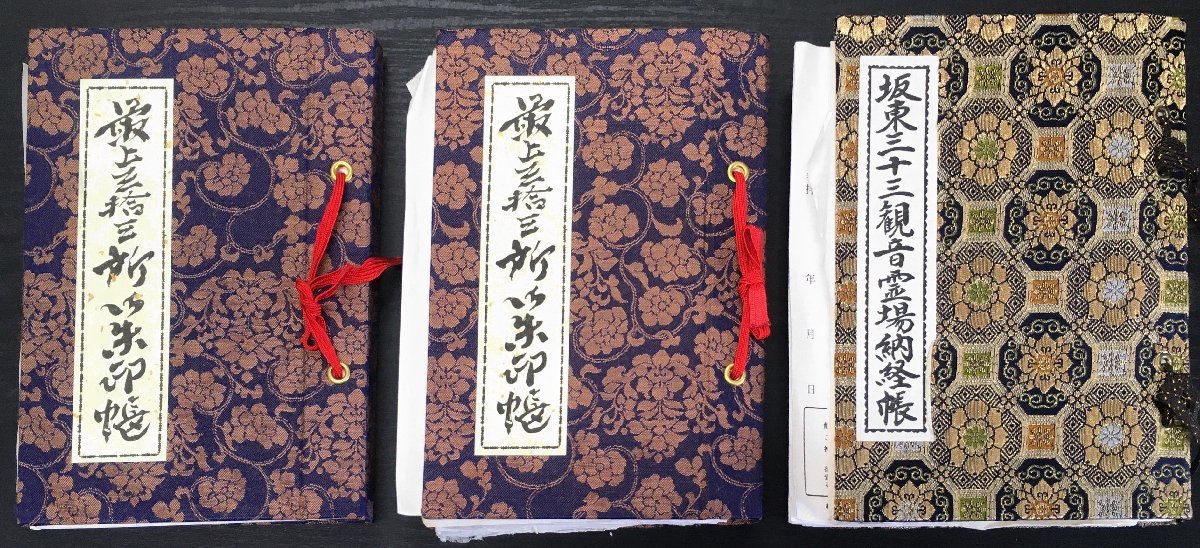 最上三拾三所御朱印帳
最上三拾三所御朱印帳
坂東三十三観音霊場納経帳
年
月
日